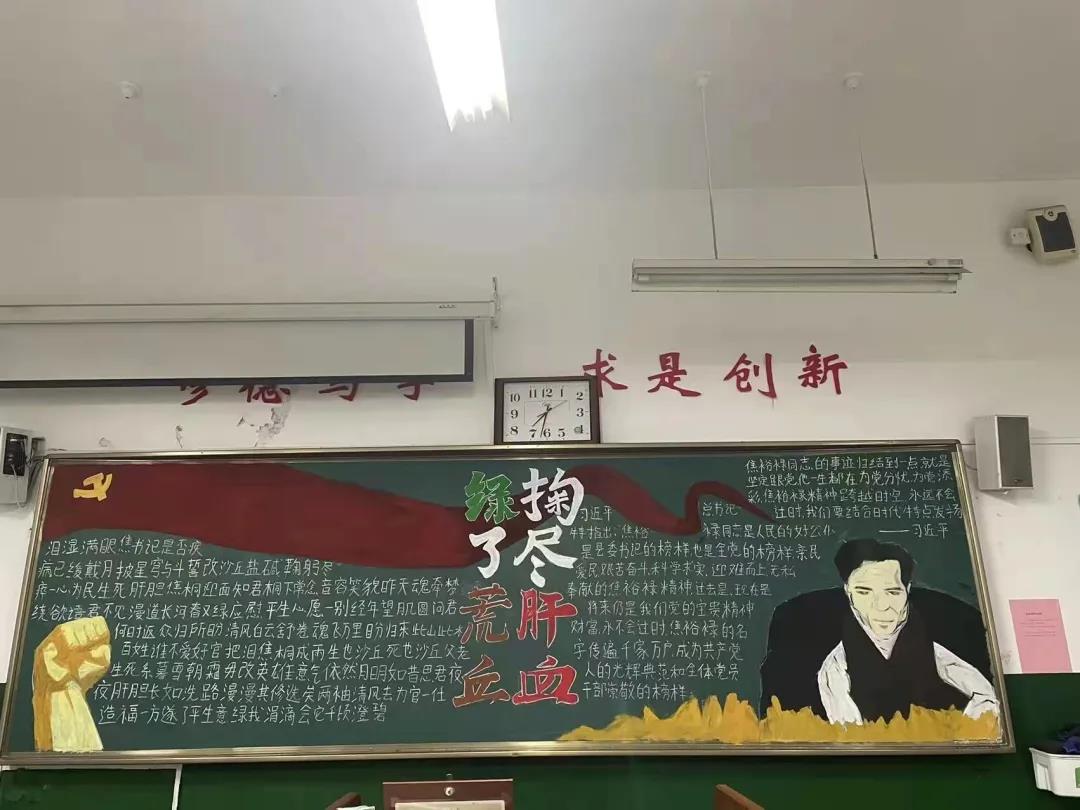 求是创新
10 11 12 1 2
9 3
8 4
7 6 5
掬尽肝血
绿了荒丘
泪湿满眼焦书记是否疾
病已缓戴月披星宫与斗誓改沙丘盐砥鞠躬尽
疾一心为民生死肝胆焦桐迎面如君桐下常念音容笑貌昨天魂牵梦
绕欲语君不见漫道长河看又绿应慰平生心愿一别经年望肌圆问君
何时返众归所盼清风白云舒卷魂飞万里盼归来此山此水
百姓谁不爱好官把泪焦桐成雨生也沙丘死也沙丘父老
生死系暮雪朝霜毋改英雄意气依然月明如昔思君夜
夜肝胆长如洗路漫漫其修远矣两袖清风去为官一任
造福一方遂了平生意绿我涓滴会它千顷澄碧
习近平 总书记
特指出:焦裕 禄同志是人民的好公仆
是县委书记的榜样也是全党的榜样亲民
爱民艰苦奋斗科学求实,迎难而上,无私
奉献的焦裕禄精神,过去是,现在是
将来仍是我们党的宝贵精神
财富,永不会过时,焦裕禄的名
字传遍千家万户,成为共产党
人的光辉典范和全体党员
干部崇敬的榜样。
焦裕禄同志的事迹归结到一点,就是
坚定跟党他一生都在为党分忧,为党添
彩,焦裕禄精神跨越时空,永远不会
过时,我们要结合时代特点发扬
——习近平